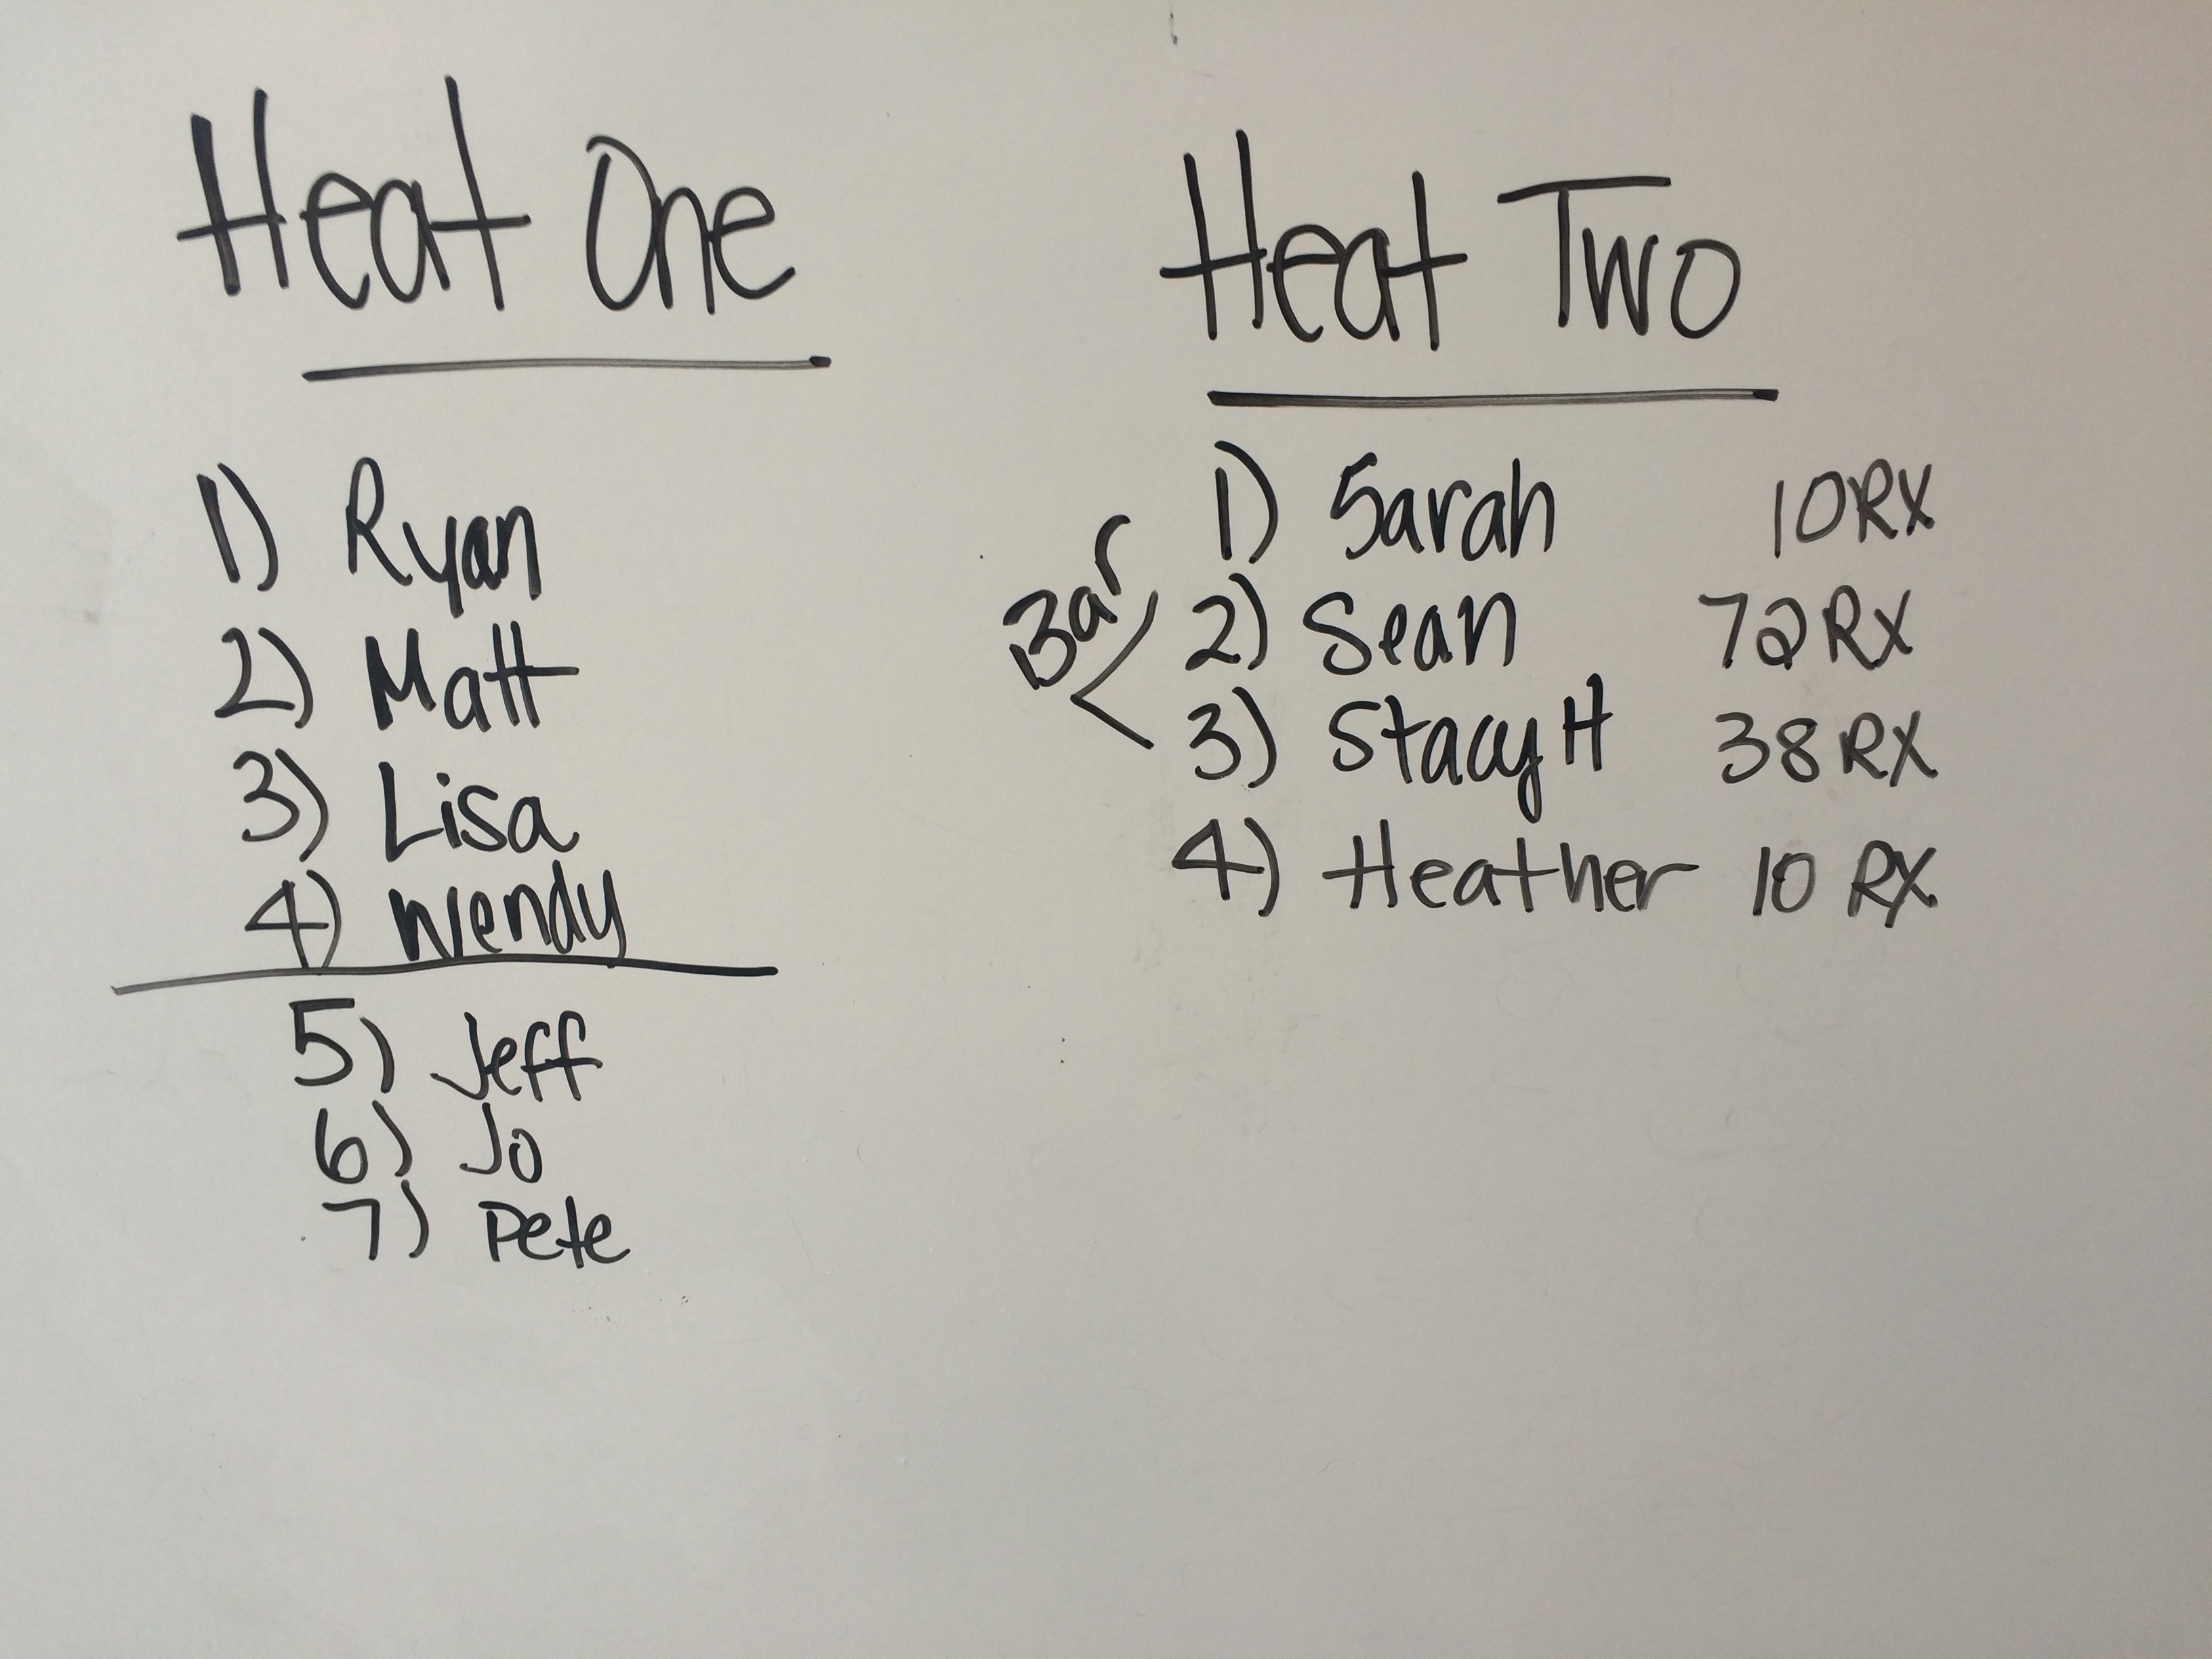 Heat One
1) Ryan
2) Matt
3) Lisa
4) Wendy
5) Jeff
6) Jo
7) Pete
Heat Two
1) Sarah 10 RX
Bar
2) Sean 72 RX
3) Stacy H 38 RX
4) Heather 10 RX